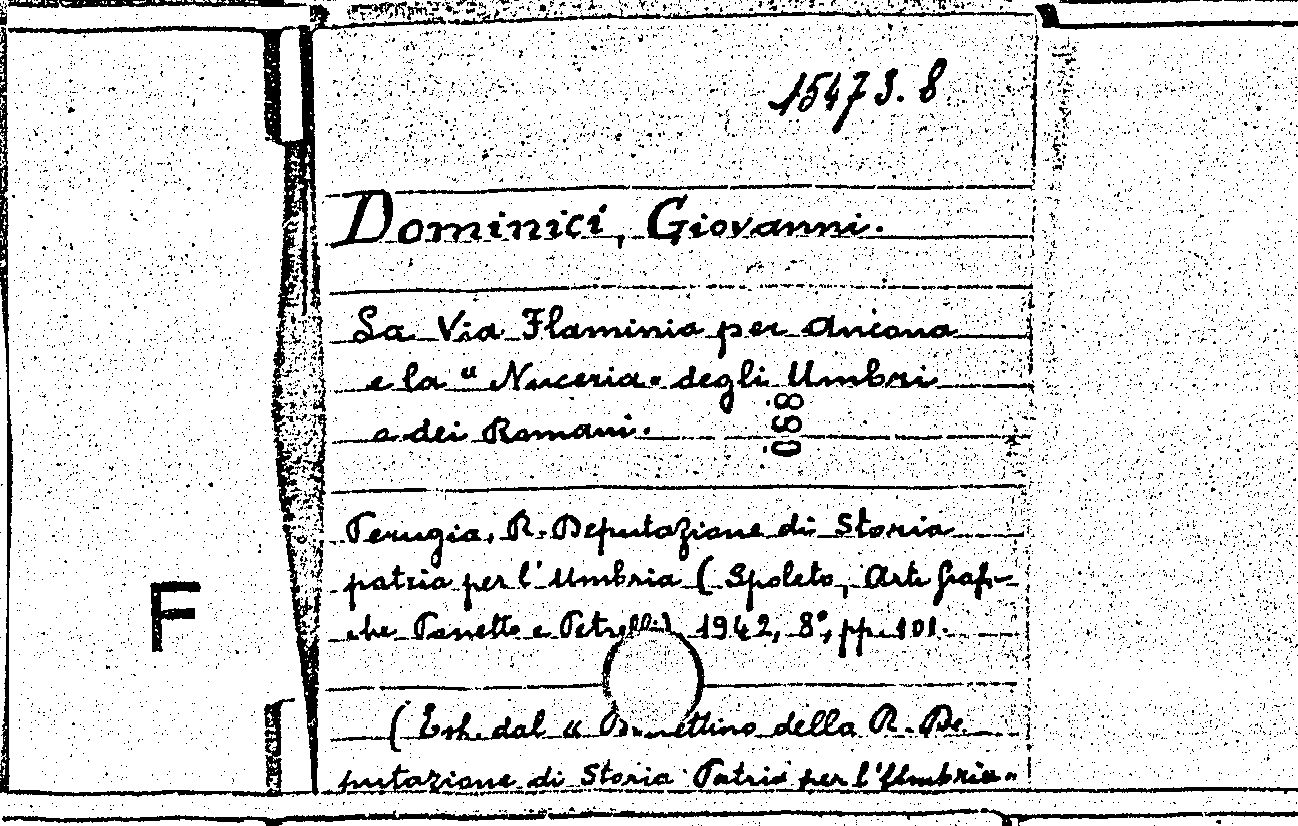 15473.8
Dominici, Giovanni.
La Via Flaminia per Ancona
e la "Nuceria" degli Umbri
e dei Romani.
068
Perugia, R. Deputazione di Storia
patria per l'Umbria (Spoleto, Arti Grafi-
che Panetto e Petrelli) 1942, 8°, pp. 101.
F
(Estr. dal "Bollettino della R. De-
putazione di Storia Patria per l'Umbria"